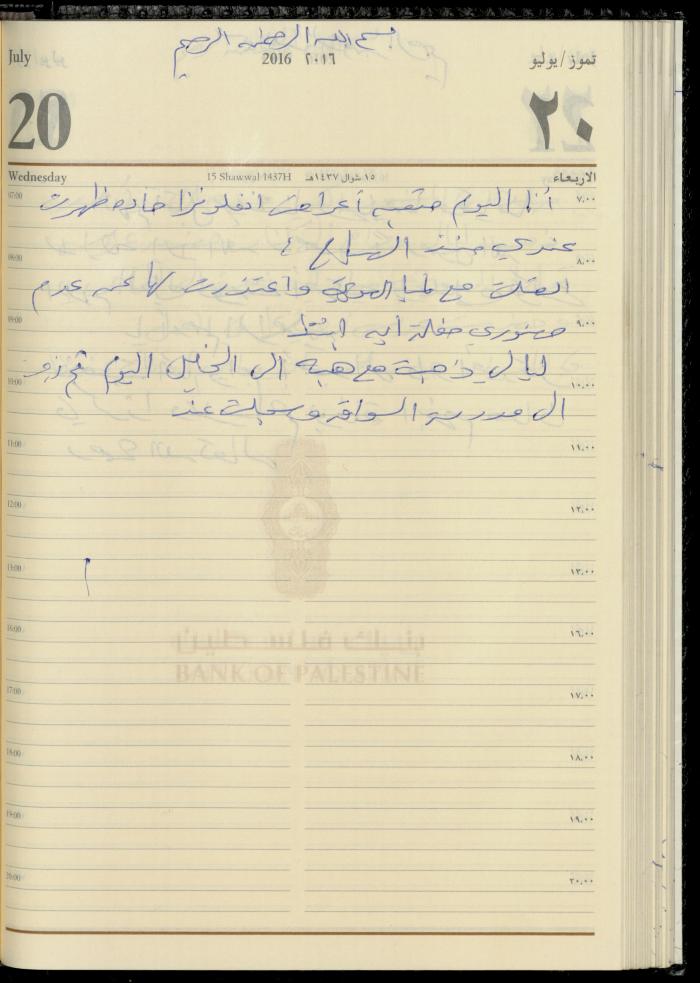 بسم الله الرحمن الرحيم
July
2016 ٢٠١٦
تموز / يوليو
20
٢٠
Wednesday
15 Shawwal 1437H
١٥ شوال ١٤٣٧هـ
الاربعاء
07:00 ٧،٠٠
أنا اليوم متعبه أعراض انفلونزا حاده ظهرت
عندي منذ الصباح ،
08:00 ٨،٠٠
اتصلت مع لميا واعتذرت لها عن عدم
09:00 ٩،٠٠
حضوري حفلة
ليالي ذهبت مع هبه الى الخليل اليوم ثم
10:00 ١٠،٠٠
الى مدرسة السواقه وسجلت عند
11:00 ١١،٠٠
12:00 ١٢،٠٠
13:00 ١٣،٠٠
16:00 ١٦،٠٠
بنك فلسطين
BANK OF PALESTINE
17:00 ١٧،٠٠
18:00 ١٨،٠٠
19:00 ١٩،٠٠
20:00 ٢٠،٠٠